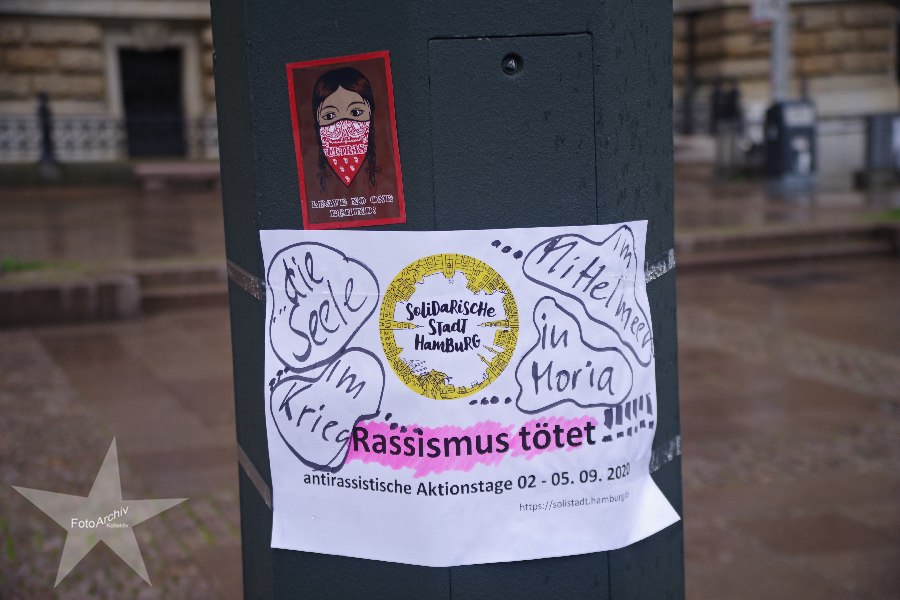 LEAVE NO ONE
BEHIND!
...die
Seele
im
Krieg
SOLIDARISCHE
STADT
HAMBURG
... im
Mittelmeer
in
Moria
...
...Rassismus tötet!!!!
antirassistische Aktionstage 02 - 05. 09. 2020
https://solistadt.hamburg
FotoArchiv
Kollektiv